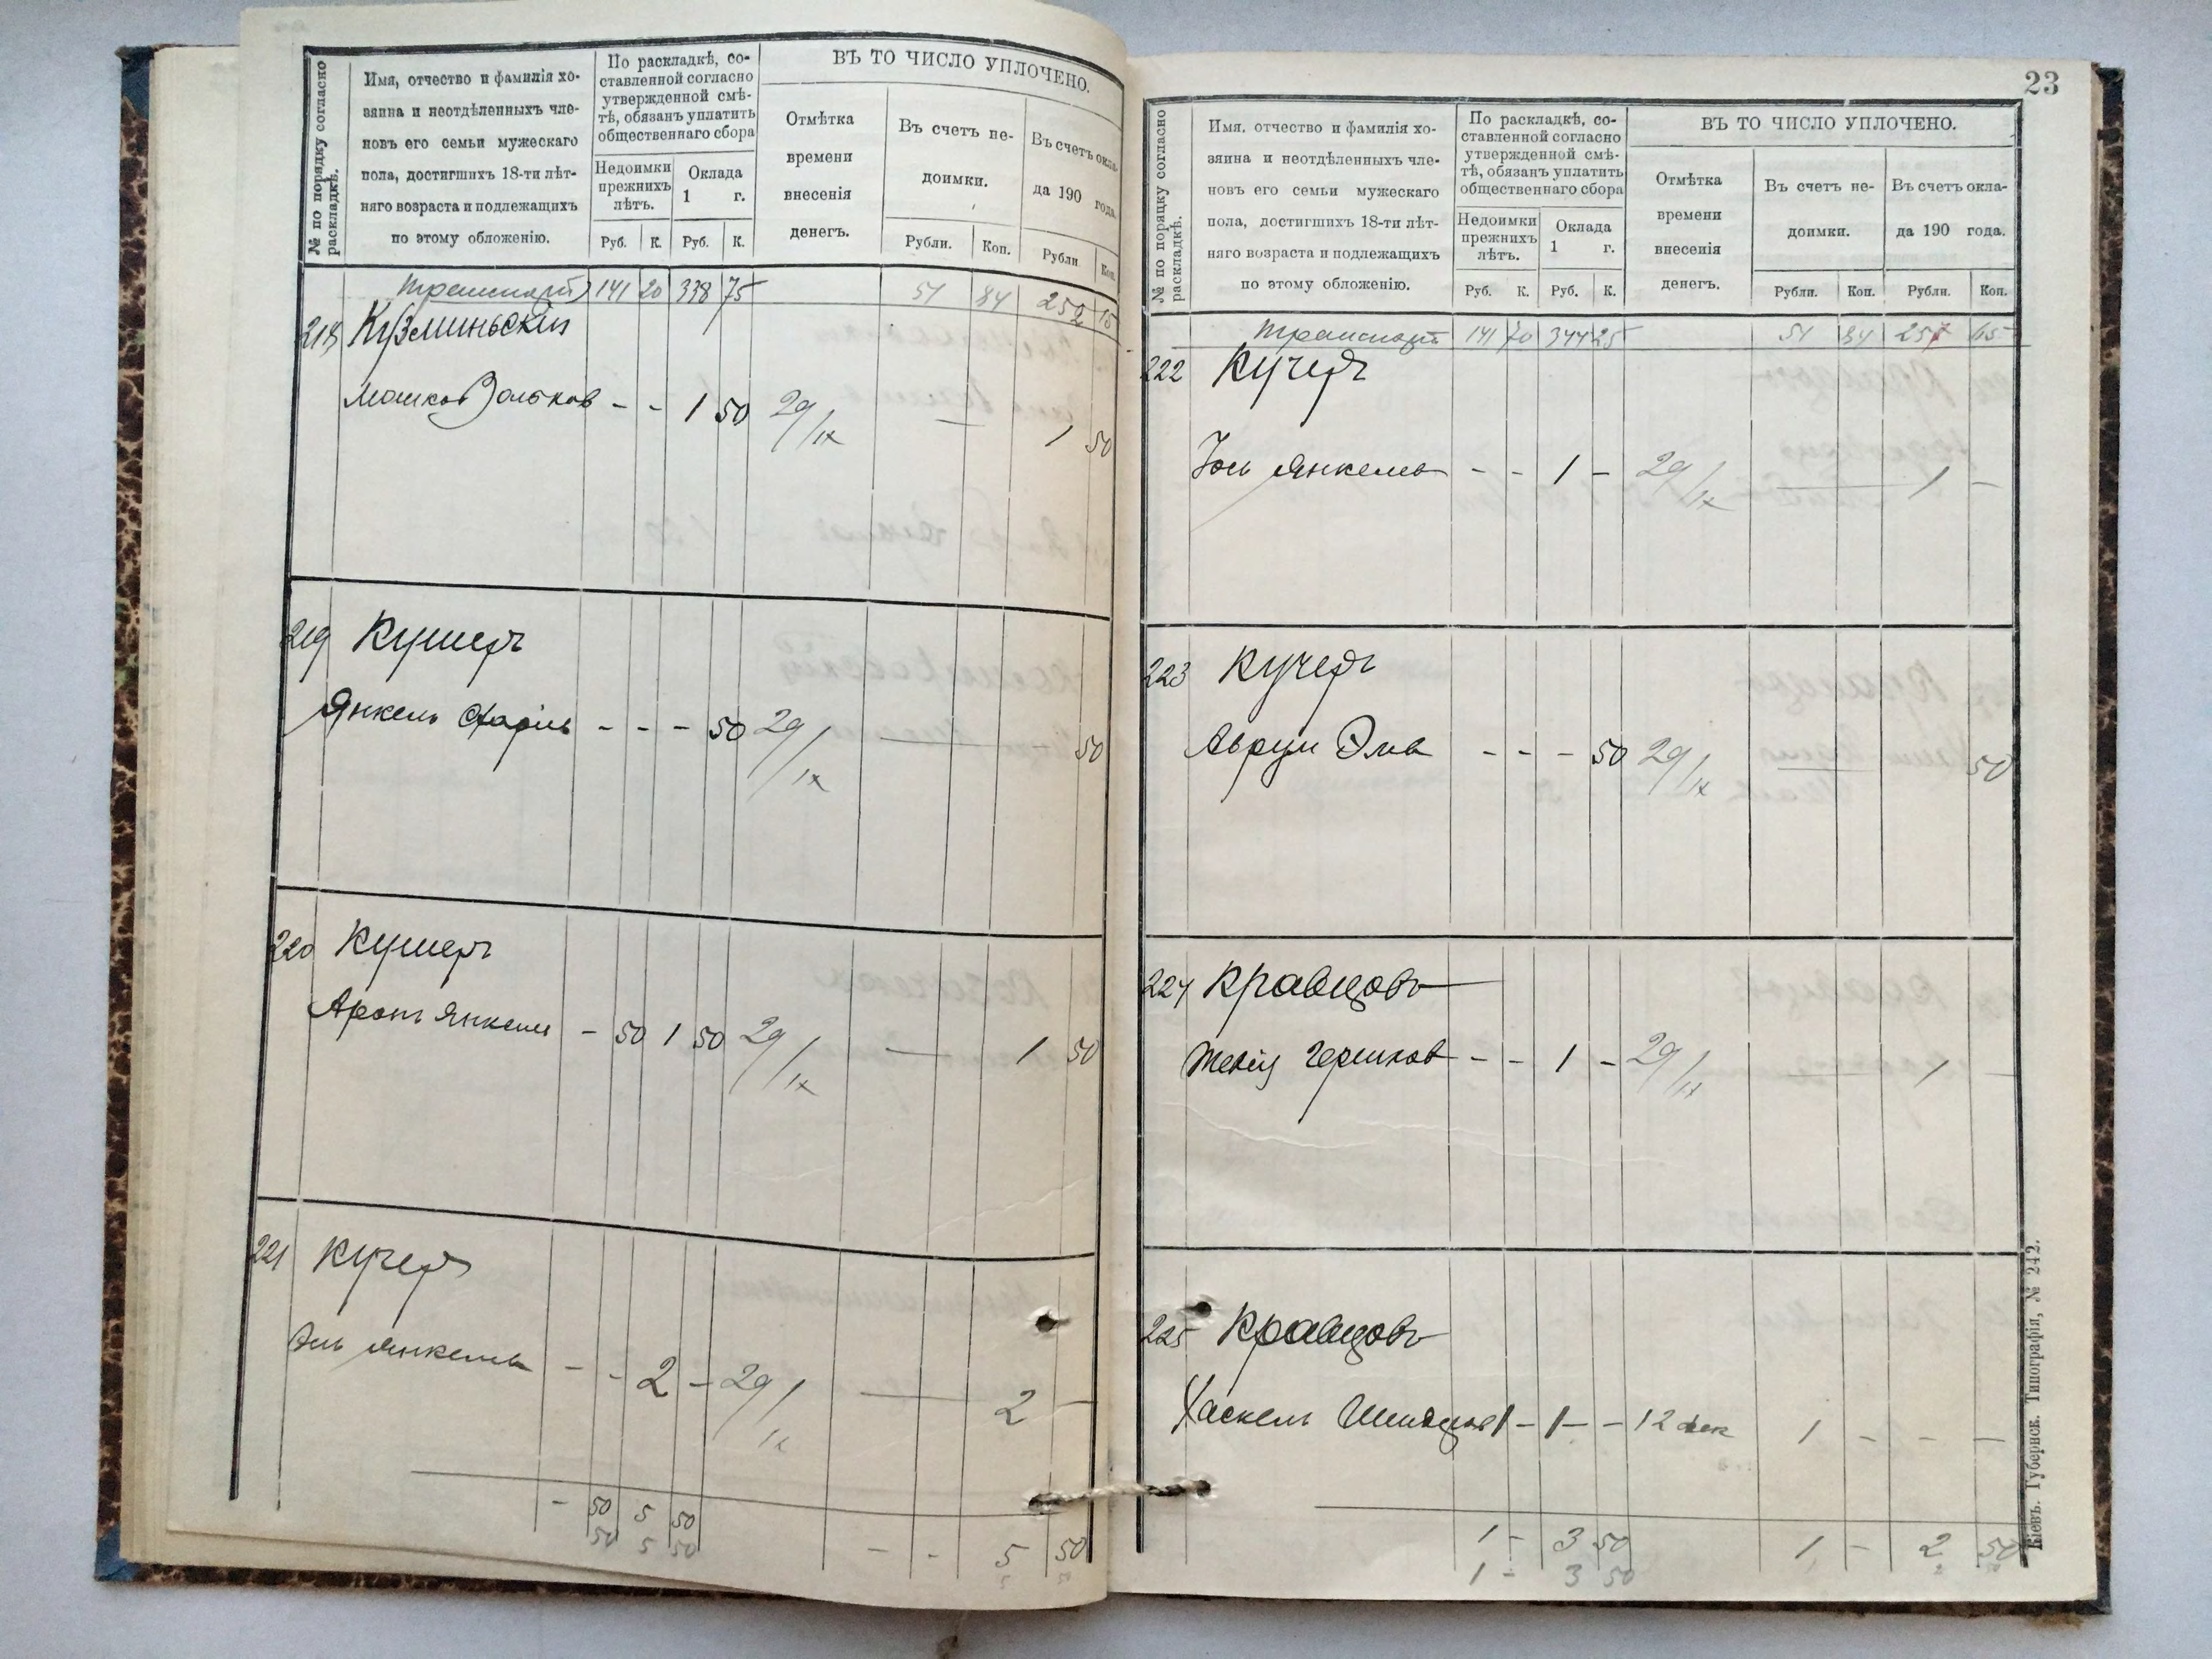 № по порядку согласно раскладкѣ.
Имя, отчество и фамилія хо-
зяина и неотдѣленныхъ чле-
новъ его семьи мужескаго
пола, достигшихъ 18-ти лѣт-
няго возраста и подлежащихъ
по этому обложенію.
По раскладкѣ, со-
ставленной согласно
утвержденной смѣ-
тѣ, обязанъ уплатить
общественнаго сбора
Недоимки
прежнихъ
лѣтъ.
Оклада
1 г.
Руб. К. Руб. К.
ВЪ ТО ЧИСЛО УПЛОЧЕНО.
Отмѣтка
времени
внесенія
денегъ.
Въ счетъ не-
доимки.
Рубли. Коп.
Въ счетъ окла-
да 190 года.
Рубли Коп.
Транспортъ 141 20 338 75 51 84 252 15
218 Кузминьскій
Мошков Вольков - - 1 50 29/IX — 1 50
219 Кушеръ
Янкель - - - 50 29/IX — 50
220 Кушеръ
Аронъ Янкель - 50 1 50 29/IX — 1 50
221 Кучеръ
Эль Янкель - - 2 - 29/IX — 2 -
- 50 5 50 - - 5 50
50 5 50
23
№ по порядку согласно раскладкѣ.
Имя, отчество и фамилія хо-
зяина и неотдѣленныхъ чле-
новъ его семьи мужескаго
пола, достигшихъ 18-ти лѣт-
няго возраста и подлежащихъ
по этому обложенію.
По раскладкѣ, со-
ставленной согласно
утвержденной смѣ-
тѣ, обязанъ уплатить
общественнаго сбора
Недоимки
прежнихъ
лѣтъ.
Оклада
1 г.
Руб. К. Руб. К.
ВЪ ТО ЧИСЛО УПЛОЧЕНО.
Отмѣтка
времени
внесенія
денегъ.
Въ счетъ не-
доимки.
Рубли. Коп.
Въ счетъ окла-
да 190 года.
Рубли. Коп.
Транспортъ 141 70 344 25 51 84 257 65
222 Кучеръ
Янкель - - 1 - 29/IX — 1 -
223 Кучеръ
Аврум Эля - - - 50 29/IX — 50
224 Кравцовъ
Гершков - - 1 - 29/IX — 1 -
225 Кравцовъ
Хаскель 1 - 1 - - 12 дек 1 - - -
1 - 3 50 1 - 2 50
1 - 3 50
Кіевъ. Губернск. Типографія, № 242.